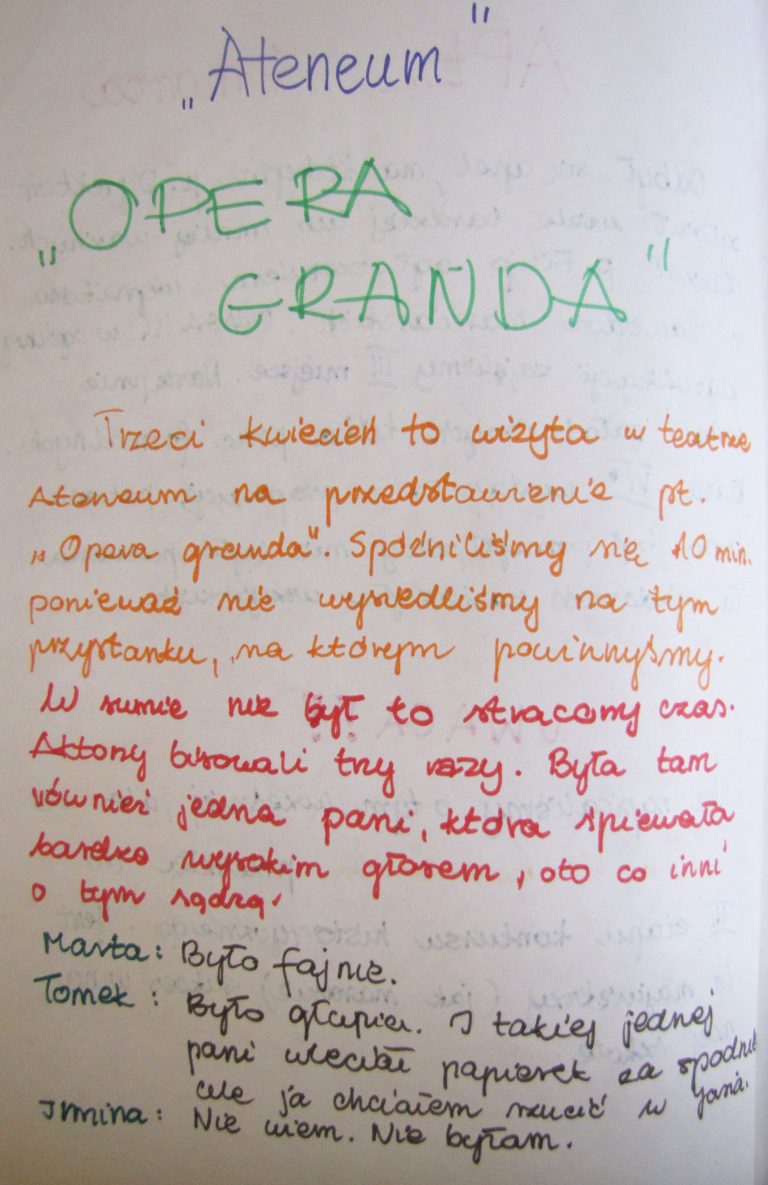 „Ateneum"
„OPERA
GRANDA"
Trzeci kwiecień to wizyta w teatrze
Ateneum na przedstawienie pt.
„Opera granda". Spóźniliśmy się 10 min.
ponieważ nie wysiedliśmy na tym
przystanku, na którym powinnyśmy.
W sumie nie był to stracony czas.
Aktorzy bisowali trzy razy. Była tam
również jedna pani, która śpiewała
bardzo wysokim głosem, oto co inni
o tym sądzą.
Marta: Było fajnie.
Tomek: Było głupio. I takiej jednej
pani wleciał papierek za spodnie
ale ja chciałem rzucić w Jana.
Irmina: Nie wiem. Nie byłam.